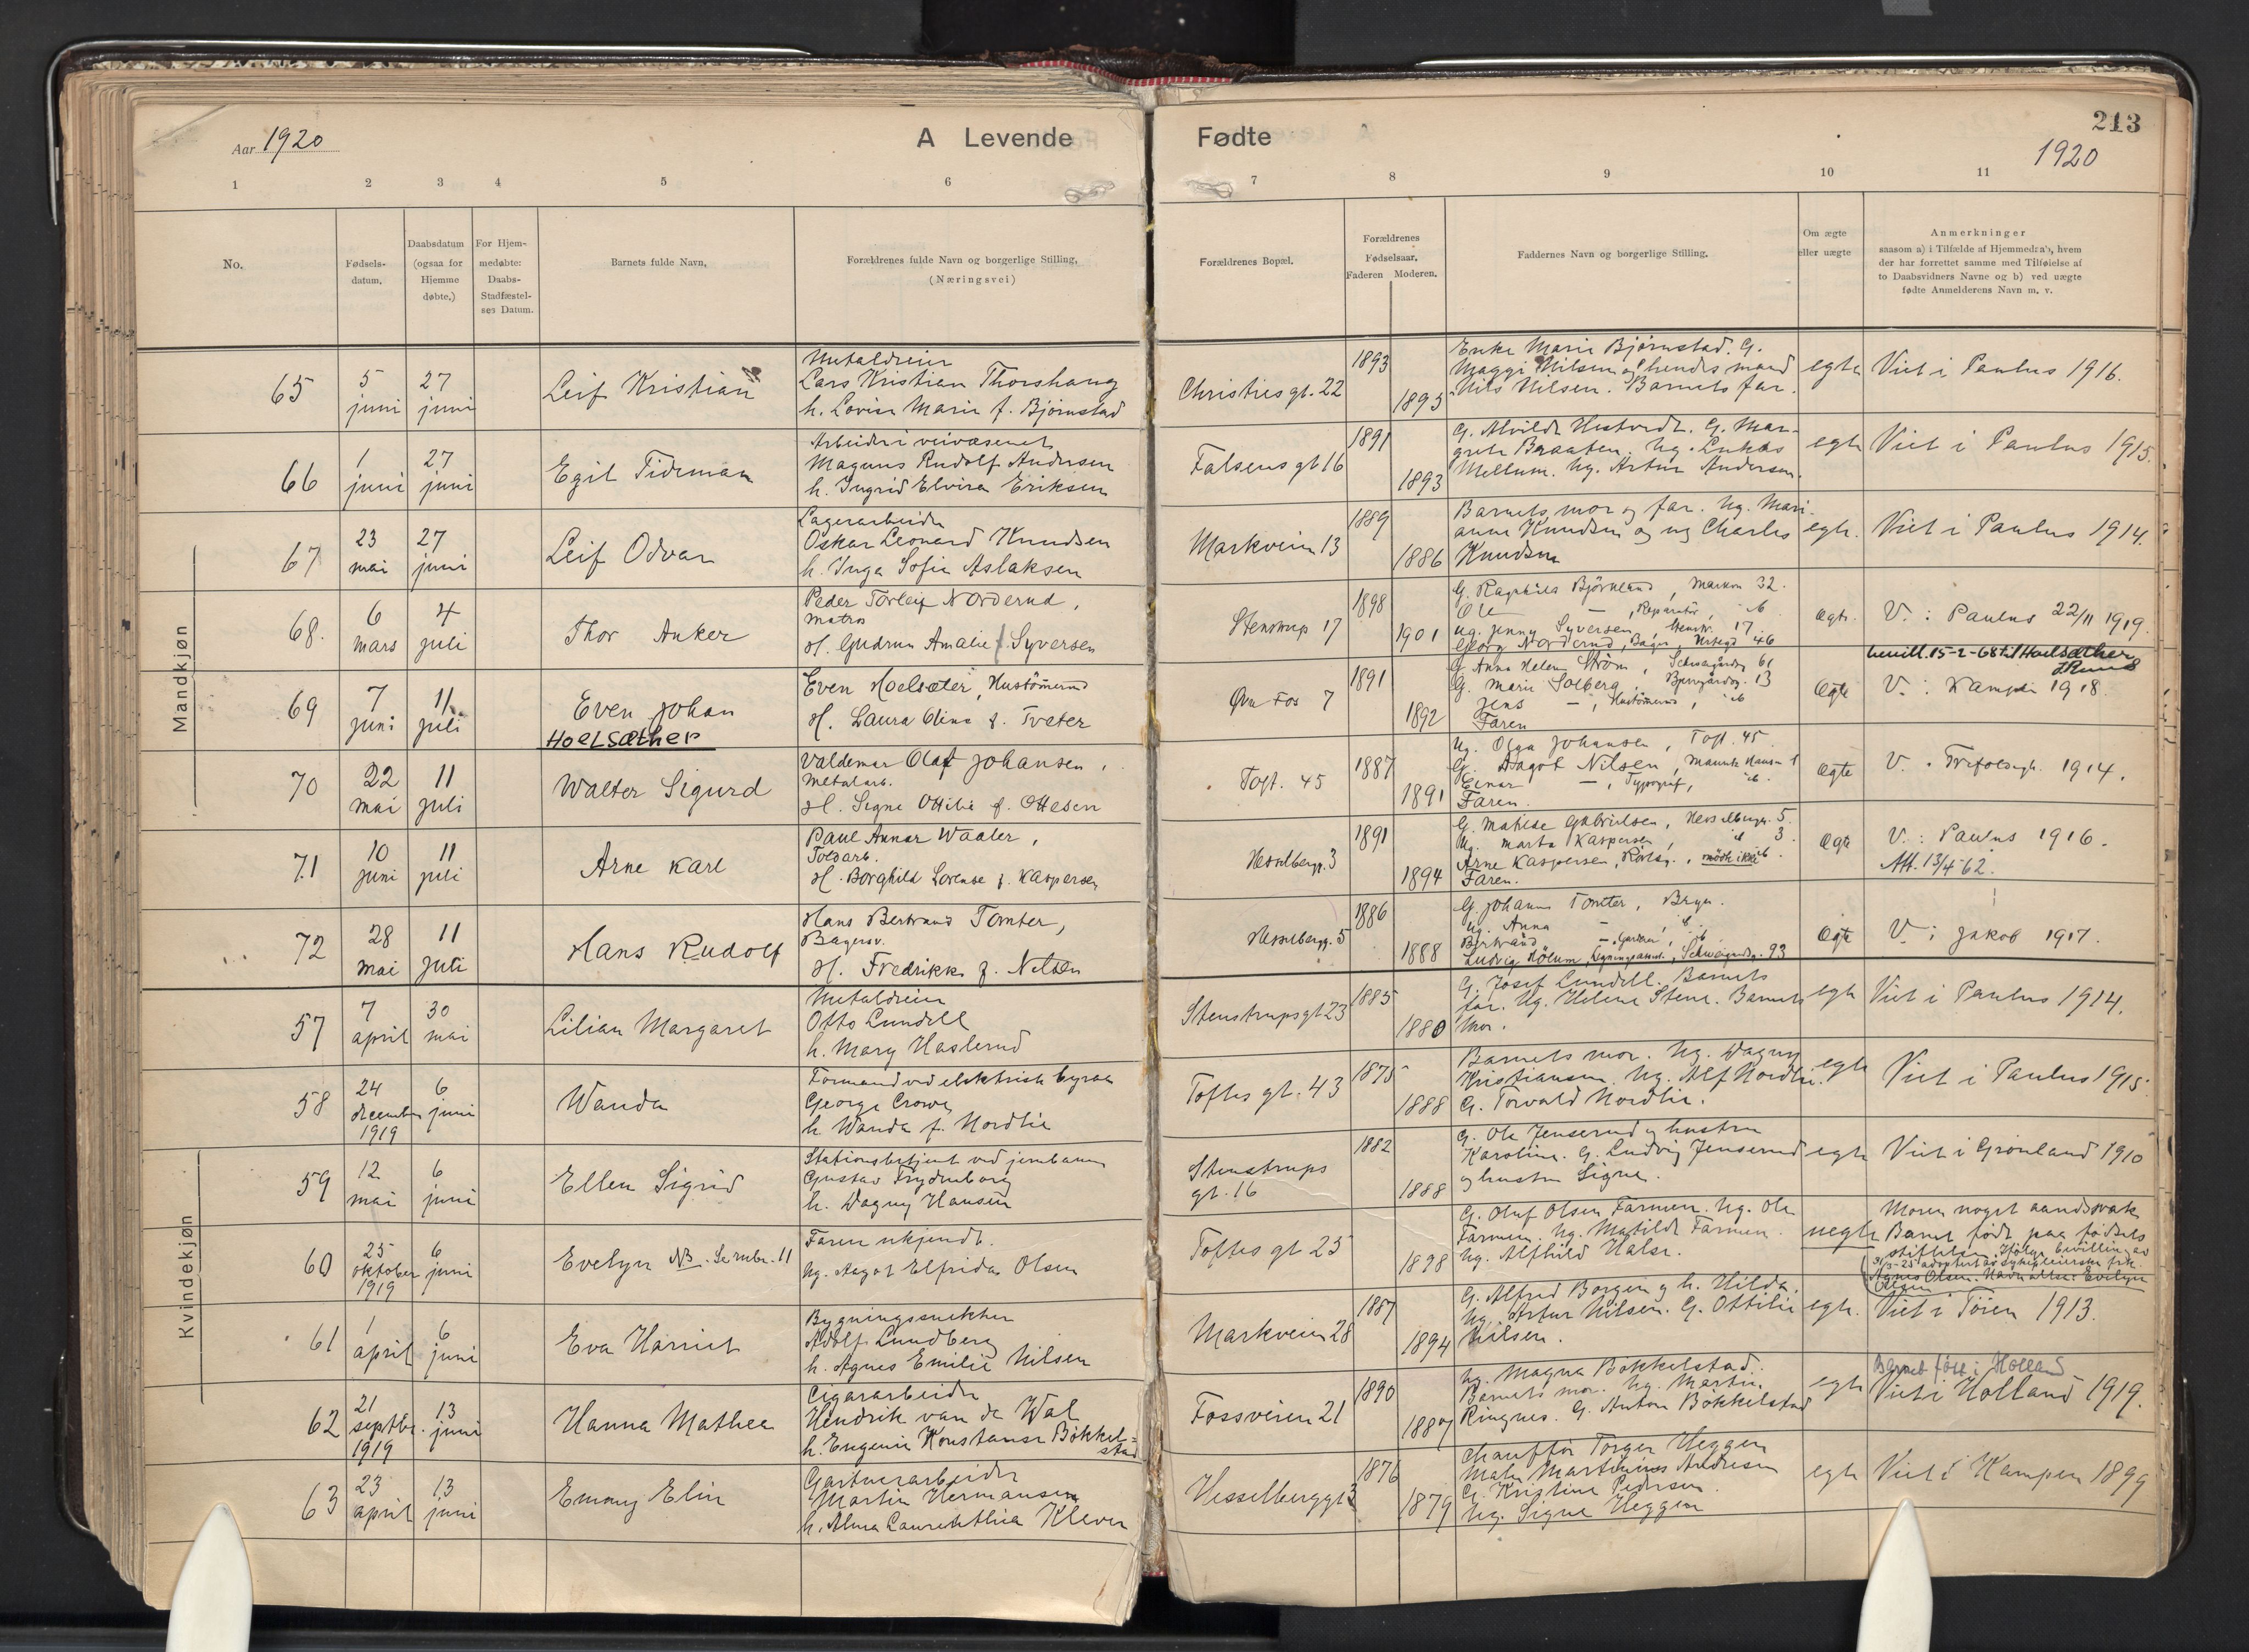 Aar 1920
A Levende
Fødte
213
1920
1 2 3 4 5 6 7 8 9 10 11
No.
Fødsels-
datum.
Daabsdatum
(ogsaa for
Hjemme
døbte.)
For Hjem-
medøbte:
Daabs-
Stadfæstel-
ses Datum.
Barnets fulde Navn.
Forældrenes fulde Navn og borgerlige Stilling.
(Næringsvei)
Forældrenes Bopæl.
Forældrenes
Fødselsaar.
Faderen Moderen.
Faddernes Navn og borgerlige Stilling.
Om ægte
eller uægte
Anmerkninger
saasom a) i Tilfælde af Hjemmedaab, hvem
der har forrettet samme med Tilføielse af
to Daabsvidners Navne og b) ved uægte
fødte Anmelderens Navn m. v.
Mandkjøn
65
5
juni
27
juni
Leif Kristian
Metaldreier
Lars Kristian Thorshaug
h. Lovise Marie f. Bjørnstad
Christies gt. 22
1893
1895
Enke Marie Bjørnstad. G.
Maggi Nilsen og hendes mand
Nils Nilsen. Barnets far.
egte
Viet i Paulus 1916.
66
1
juni
27
juni
Egil Tideman
Arbeider i veivæsenet
Magnus Rudolf Andersen
h. Ingrid Elvira Eriksen
Falsens gt 16
1891
1893
G. Alvilde G. Mar-
grete Braaten. Ug. Lukas
Mellum. Ug. Artur Andersen.
egte
Viet i Paulus 1915.
67
23
mai
27
juni
Leif Odvar
Lagerarbeider
Oskar Leonard Knudsen
h. Inga Sofie Aslaksen
Markveien 13
1889
1886
Barnets mor og far. Ug. Mari-
anne Knudsen og ug Charles
Knudsen
egte.
Viet i Paulus 1914.
68.
6
mars
4
juli
Thor Anker
Peder Torleif Norderud,
Matros
H. Gudrun Amalie f. Syversen
Stenstrup 17
1898
1901
G. Ragnhild Bjørklund, Markv 32.
Ole — , Reparatør, ib
Ug. Jenny Syversen, Stenstr. 17.
Georg Norderud, Bager, 46
Ægte.
V. i Paulus 22/11 1919.
69
7
juni
11
juli
Even Johan
Hoelsæther
Even Hoelsæter, Hustømmermd
H. Laura Oline f. Tveter
Øvre Fos 7
1891
1892
G Anna Helene Strøm, Schweigårdsg 61
G. Marie Solberg, 13
Jens — , Hustømmermd, ib
Faren
Ægte
bevill. 15-2-68 til Hoelsæther
V. i Kampen 1918.
70
22
mai
11
juli
Walter Sigurd
Valdemar Olaf Johansen,
Metalarb.
H. Signe Ottilie f. Ottesen
Toft. 45
1887
1891
Ug. Olga Johansen, Toft. 45.
G. Dagot Nilsen, Hansen 1
Einar — , Typograf, ib.
Faren.
Ægte
V. i Trefoldigh. 1914.
71
10
juni
11
juli
Arne Karl
Paul Annar Waaler,
Toldarb.
H. Borghild Lorense f. Kaspersen
Hesselbergg. 3
1891
1894
G. Matilde Gabrielsen, Hesselbergg. 5.
Ug. Marta Kaspersen, ib 3.
Arne Kaspersen, Rørlæg., mødte ikke ib.
Faren.
Ægte
V. i Paulus 1916.
Att. 13/4 62.
72
28
mai
11
juli
Hans Rudolf
Hans Bertrand Tomter,
Bagersv.
H. Fredrikke f. Nelsen
Hesselbergg. 5
1886
1888
G. Johanne Tomter, Bryn.
Ug. Anna — ib
Bertrand — , Gartner, ib
Ludvig Holum, Schweigårdsg. 93
Ægte
V. i Jakob 1917.
Kvindekjøn
57
7
april
30
mai
Lilian Margaret
Metaldreier
Otto Lundell
h. Mary Haslerud
Stenstrupsgt 23
1885
1880
G. Josef Lundell. Barnets
far. Ug. Helene Stene. Barnets
mor.
egte
Viet i Paulus 1914.
58
24
december
1919
6
juni
Wanda
Formand ved elektrisk byraa
George Crowe
h Wanda f. Nordlie
Toftes gt. 43
1875
1888
Barnets mor. Ug. Dagny
Kristiansen. Ug. Alf Nordlie.
G. Torvald Nordlie.
egte
Viet i Paulus 1915.
59
12
mai
6
juni
Ellen Sigrid
Stationsbetjent ved jernbanen
Gustav Frydenborg
h. Dagny Hansen
Stenstrups
gt. 16
1882
1888
G. Ole Jenserud og hustru
Karoline. G. Ludvig Jenserud
og hustru Signe.
egte
Viet i Grønland 1910
60
25
oktober
1919
6
juni
Evelyn NB. Se rubr. 11
Faren ukjendt.
Ug. Aagot Elfrida Olsen
Toftes gt 25
1898
G. Oluf Olsen Farmen. Ug. Ole
Farmen. Ug. Matilde Farmen.
Ug. Alfhild Halse.
uegte
Moren noget aandssvak
Barnet født paa fødsels
stiftelsen. Ifølge bevilling av
adoptert av sykepleierske frk.
Agnes Olsen. Navn altsaa: Evelyn
Olsen
61
1
april
6
juni
Eva Harriet
Bygningssnekker
Adolf Lundberg
h. Agnes Emilie Nilsen
Markveien 28
1887
1894
G. Alfred Borgen og h. Hilda.
Ug. Artur Nilsen. G. Ottilie
Nilsen.
egte.
Viet i Tøien 1913.
62
21
septbr.
1919
13
juni
Hanna Mathea
Cigararbeider
Hendrik van de Wal
h. Eugenie Konstanse Bökkel-
stad
Fossveien 21
1890
1887
Ug. Magna Bökkelstad.
Barnets mor. Ug. Martin
Ringnes. G. Anton Bökkelstad
egte
Barnet født i Holland
Viet i Holland 1919.
63
23
april
13
juni
Emmy Elin
Gartnerarbeider
Martin Hermansen
h. Alma Laurenthia Klever
Hesselberggt 3
1876
1879
Chauffør Torger Heggen
Maler Martinius Andresen
G. Kristine Pedersen.
Ug. Signe Heggen
egte
Viet i Kampen 1899